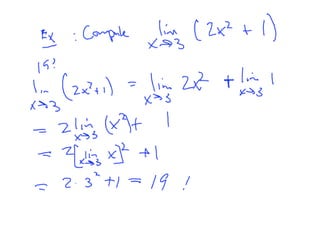 Ex : Compute lim x→3 (2x² + 1)
19?
lim x→3 (2x²+1) = lim x→3 2x² + lim x→3 1
= 2 lim x→3 (x²) + 1
= 2[lim x→3 x]² + 1
= 2·3² + 1 = 19 !